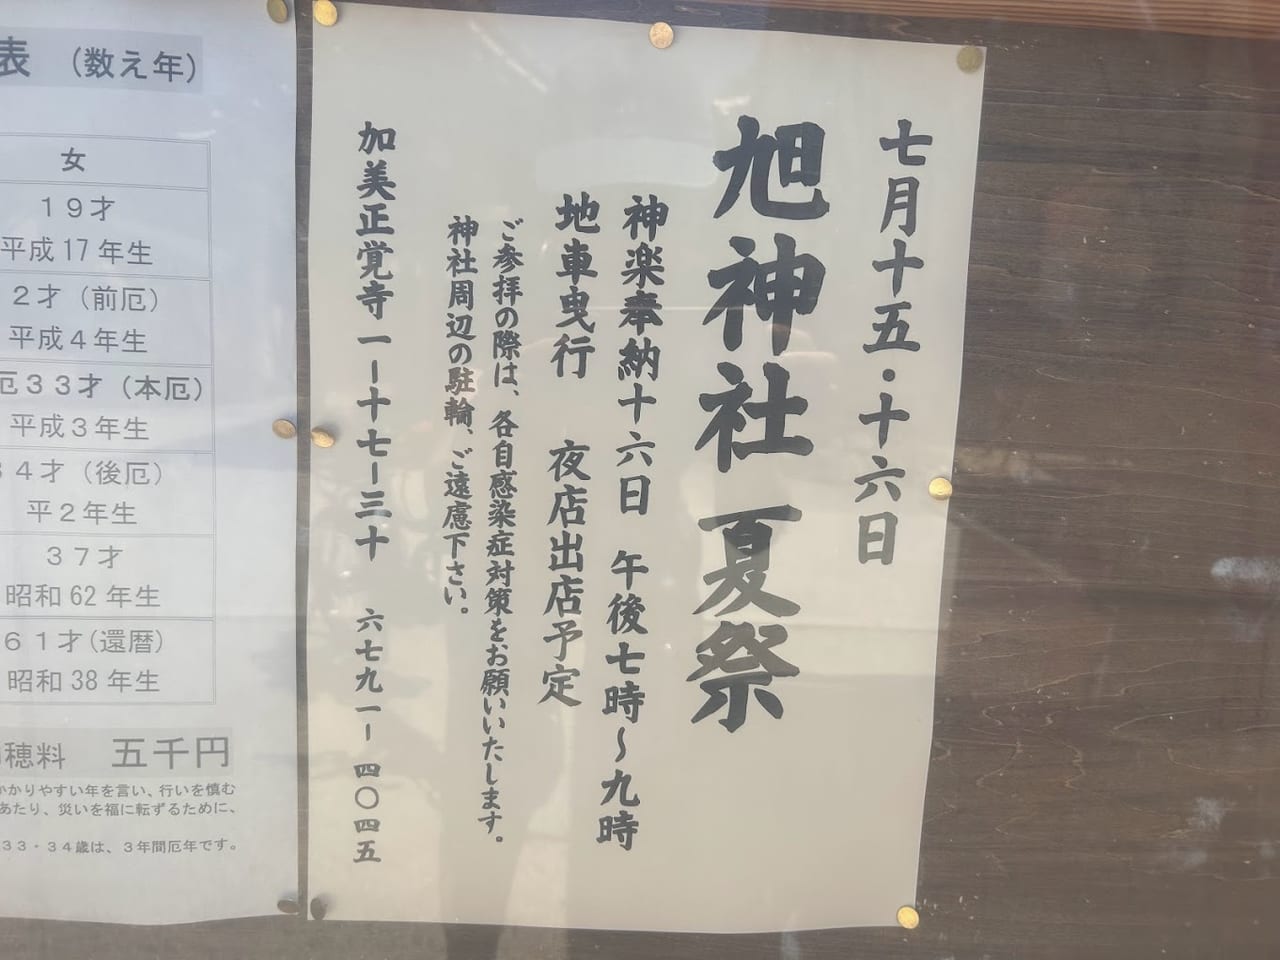 七月十五・十六日
旭神社 夏祭
神楽奉納十六日 午後七時〜九時
地車曳行 夜店出店予定
ご参拝の際は、各自感染症対策をお願いいたします。
神社周辺の駐輪、ご遠慮下さい。
加美正覚寺一ー十七ー三十 六七九一ー四〇四五
表 (数え年)
女
19才
平成17年生
2才(前厄)
平成4年生
厄33才(本厄)
平成3年生
34才(後厄)
平2年生
37才
昭和62年生
61才(還暦)
昭和38年生
穂料 五千円
かかりやすい年を言い、行いを慎む
あたり、災いを福に転ずるために、
33・34歳は、3年間厄年です。